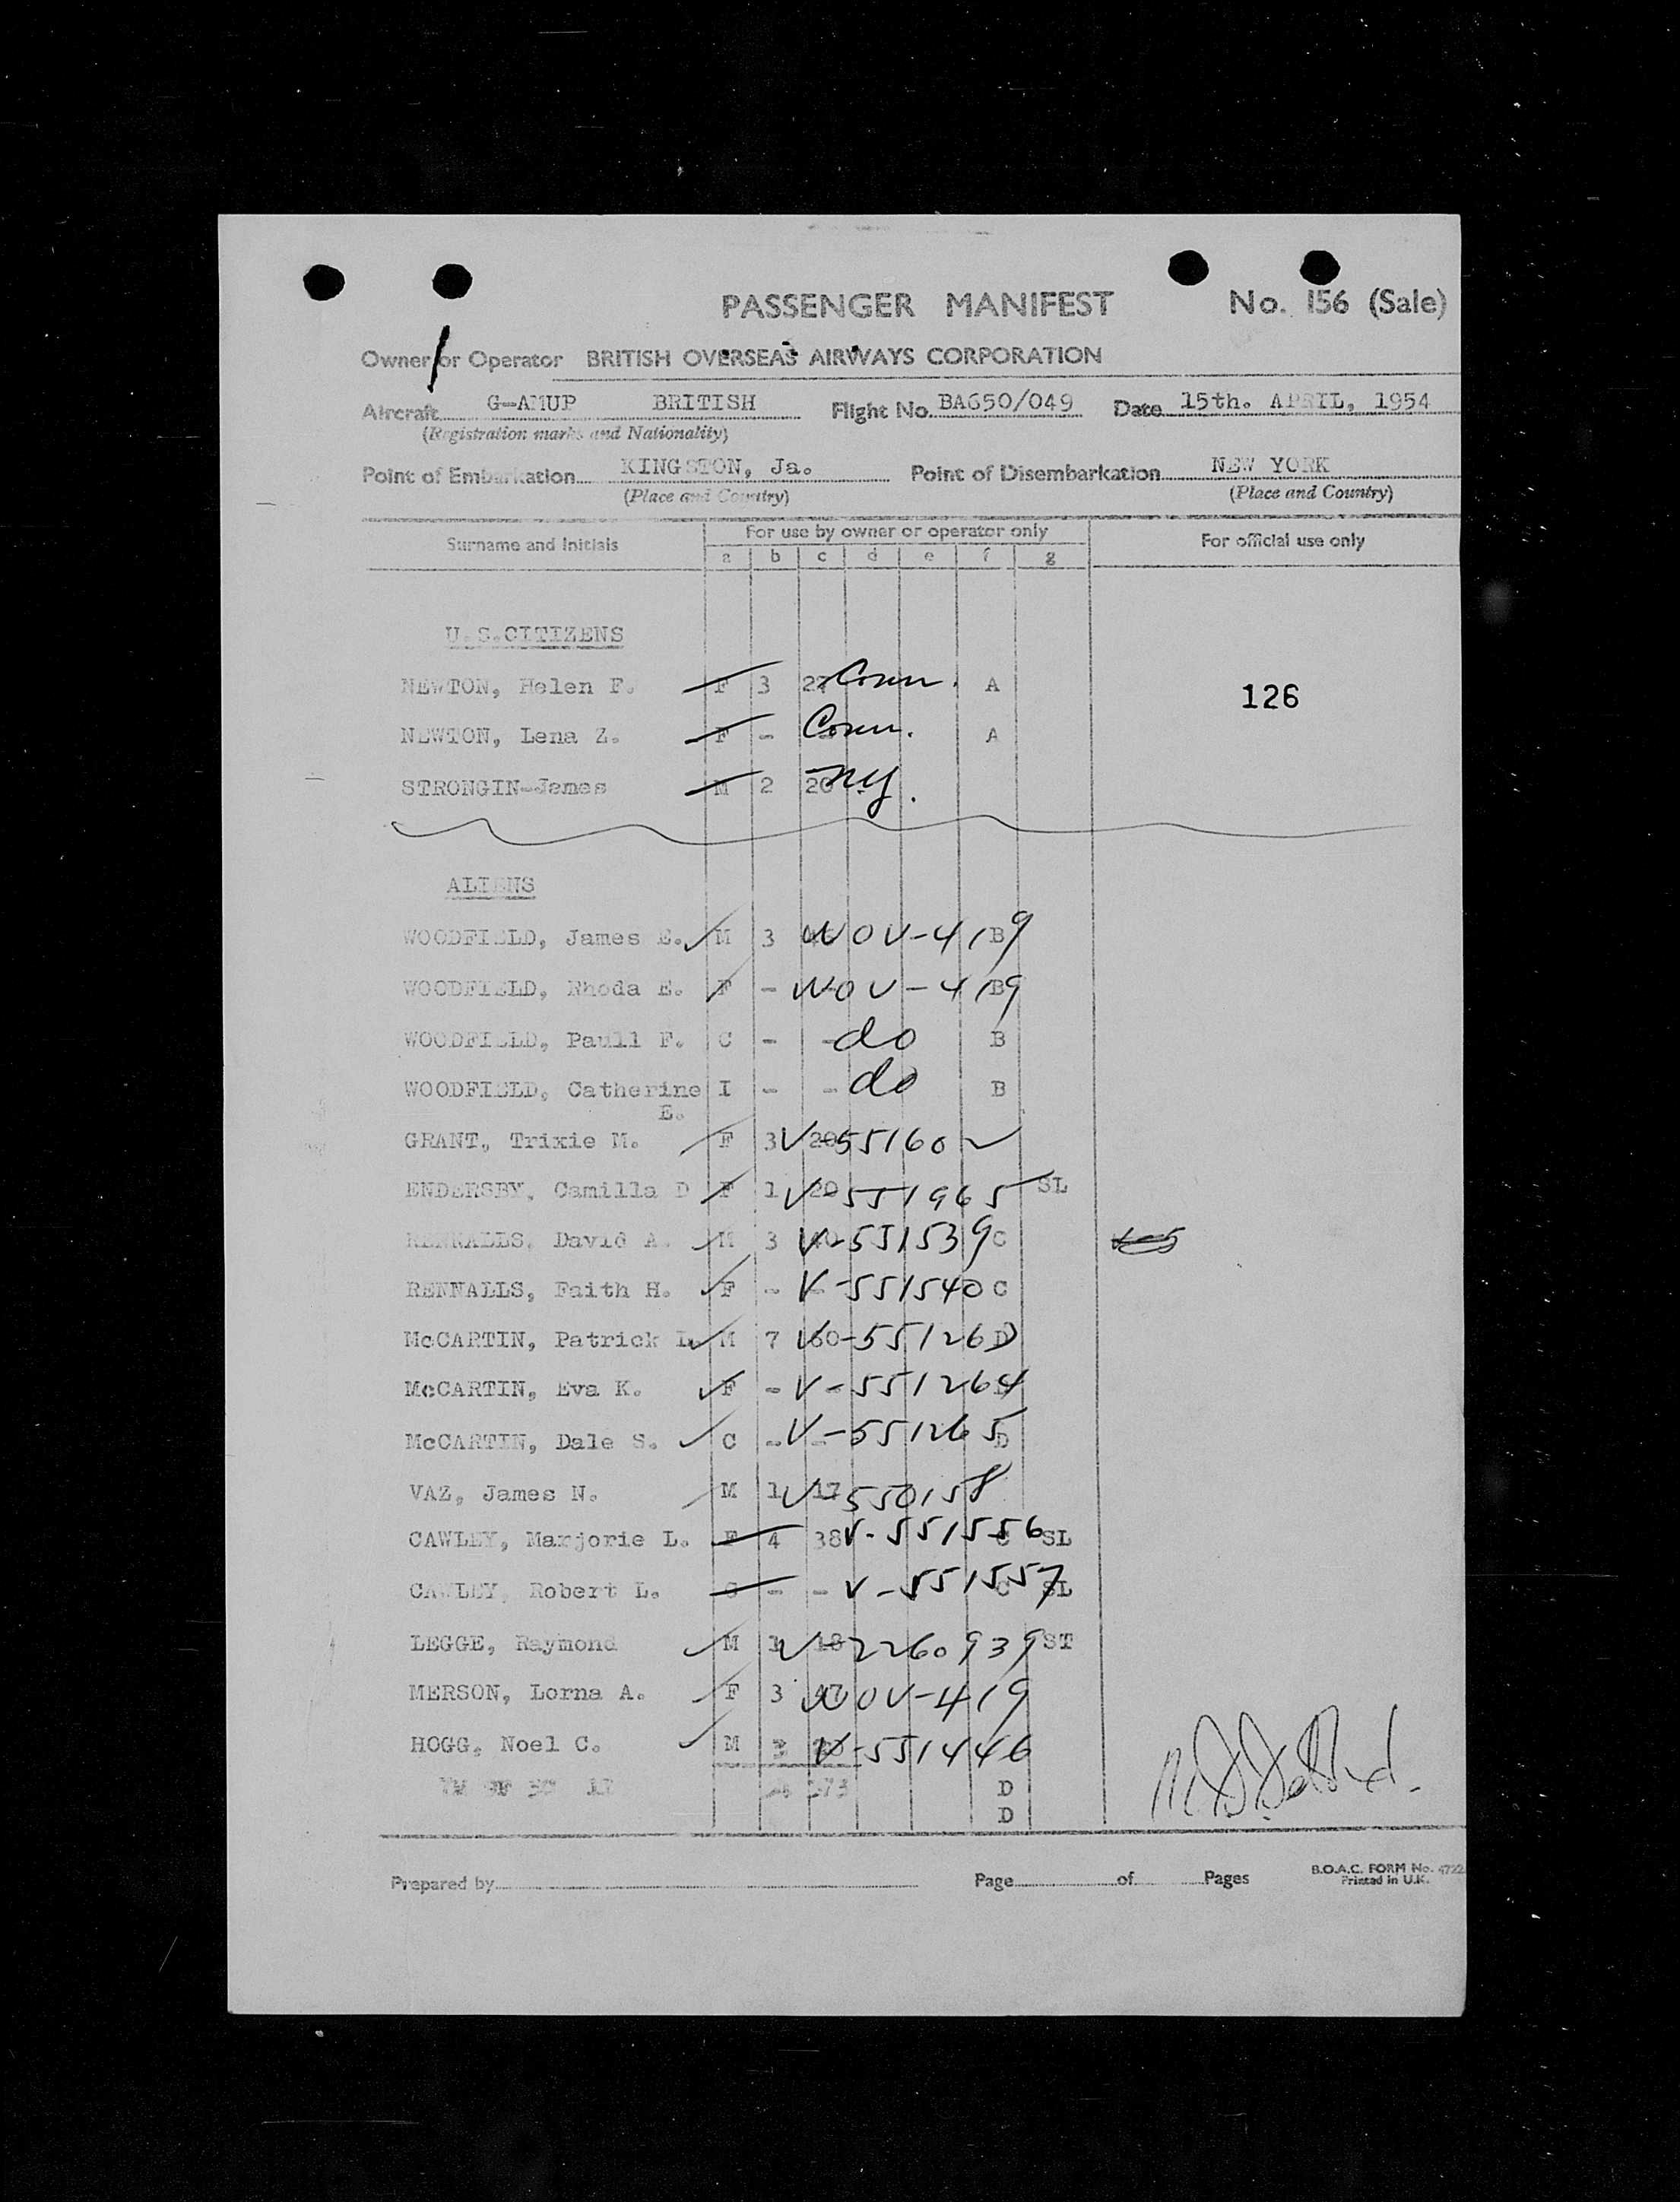 PASSENGER MANIFEST No. 156 (Sale)
Owner or Operator BRITISH OVERSEAS AIRWAYS CORPORATION
Aircraft G-AMUP BRITISH Flight No. BA650/049 Date 15th. APRIL, 1954
(Registration marks and Nationality)
Point of Embarkation KINGSTON, Ja. Point of Disembarkation NEW YORK
(Place and Country) (Place and Country)
Surname and Initials For use by owner or operator only For official use only
a b c d e f g
U.S.CITIZENS
NEWTON, Helen F. F 3 27 Conn. A 126
NEWTON, Lena Z. F - Conn. A
STRONGIN-James M 2 20 NY.
ALIENS
WOODFIELD, James E. M 3 WOV-419 B
WOODFIELD, Rhoda E. F - WOV-419 B
WOODFIELD, Paull F. C - - do B
WOODFIELD, Catherine I - - do B
E.
GRANT, Trixie M. F 3 20 V-55160
ENDERSBY, Camilla D F 1 20 V-551965 SL
RENNALLS, David A. M 3 V-551539 C
RENNALLS, Faith H. F - - V-551540 C
McCARTIN, Patrick L. M 7 60 V-55126 D
McCARTIN, Eva K. F - - V-551264
McCARTIN, Dale S. C - - V-551265 D
VAZ, James N. M 1 17 V-550158
CAWLEY, Marjorie L. F 4 38 V-551556 C SL
CAWLEY, Robert L. C - - V-551557 C SL
LEGGE, Raymond M 1 18 V-2260939 ST
MERSON, Lorna A. F 3 WOV-419
HOGG, Noel C. M V-551446
D
D
Prepared by Page of Pages B.O.A.C. FORM No. 4722
Printed in U.K.